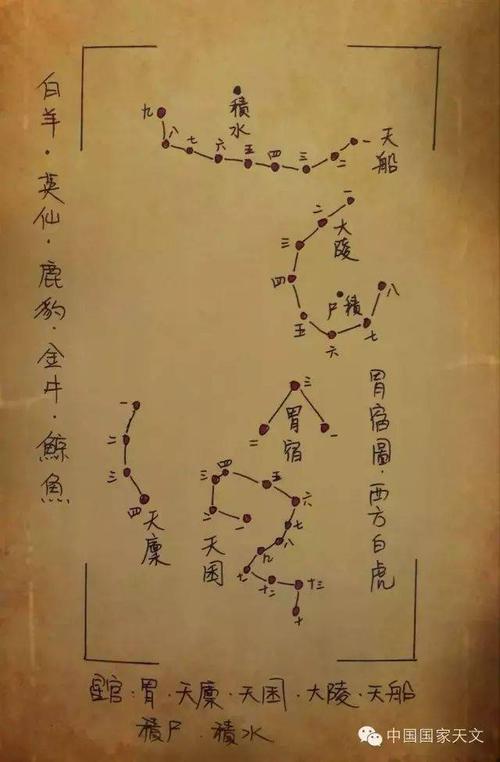 白羊·英仙·鹿豹·金牛·鯨魚
積水
九
八
七
六
五
四
三
二
一
天船
一
二
三
四
五
六
七
八
大陵
積尸
三
二
一
胃宿
胃宿圖·西方白虎
一
二
三
四
天廩
一
二
三
四
五
六
七
八
九
十二
十三
十
天囷
星官:胃·天廩·天囷·大陵·天船
積尸·積水
中国国家天文